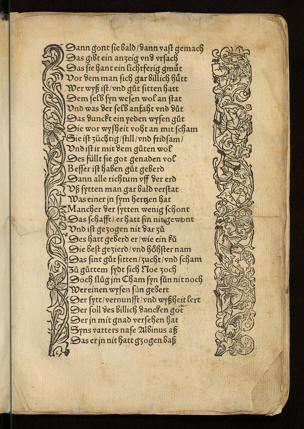 Dann gont sie bald / dann vast gemach
Das gibt ein anzeig vnd vrsach
Das sie hant ein lichtferig gmüt
Vor dem man sich gar billich hütt
Wer wyß ist / vnd gůt sitten hatt
Dem selb syn wesen wol an stat
Vnd was der selb anfaht vnd důt
Das dunckt ein yeden wysen gůt
Die wor wyßheit voht an mit scham
Sie ist züchtig / still / vnd fridsam /
Vnd ist ir mit dem gůten wol
Des füllt sie got genaden vol
Besser ist haben gůt geberd
Dann alle richtum vff der erd
Vß sytten man gar bald verstat
Was einer jn sym hertzen hat
Mancher der sytten wenig schont
Das schafft / er hatt sin nit gewont
Vnd ist gezogen nit dar zů
Des hatt geberd er / wie ein ků
Die best gezierd / vnd höhster nam
Das sint gůt sitten / zucht / vnd scham
Zů gůttem fydt sich Noe zoch
Doch slůg jm Cham syn sůn nit noch
Wer einen wysen sůn gebert
Der sytt / vernunfft / vnd wyßheit lert
Der soll des billich dancken got
Der jn mit gnad versehen hat
Syns vatters nase Albinus aß
Das er jn nit hatt gzogen baß